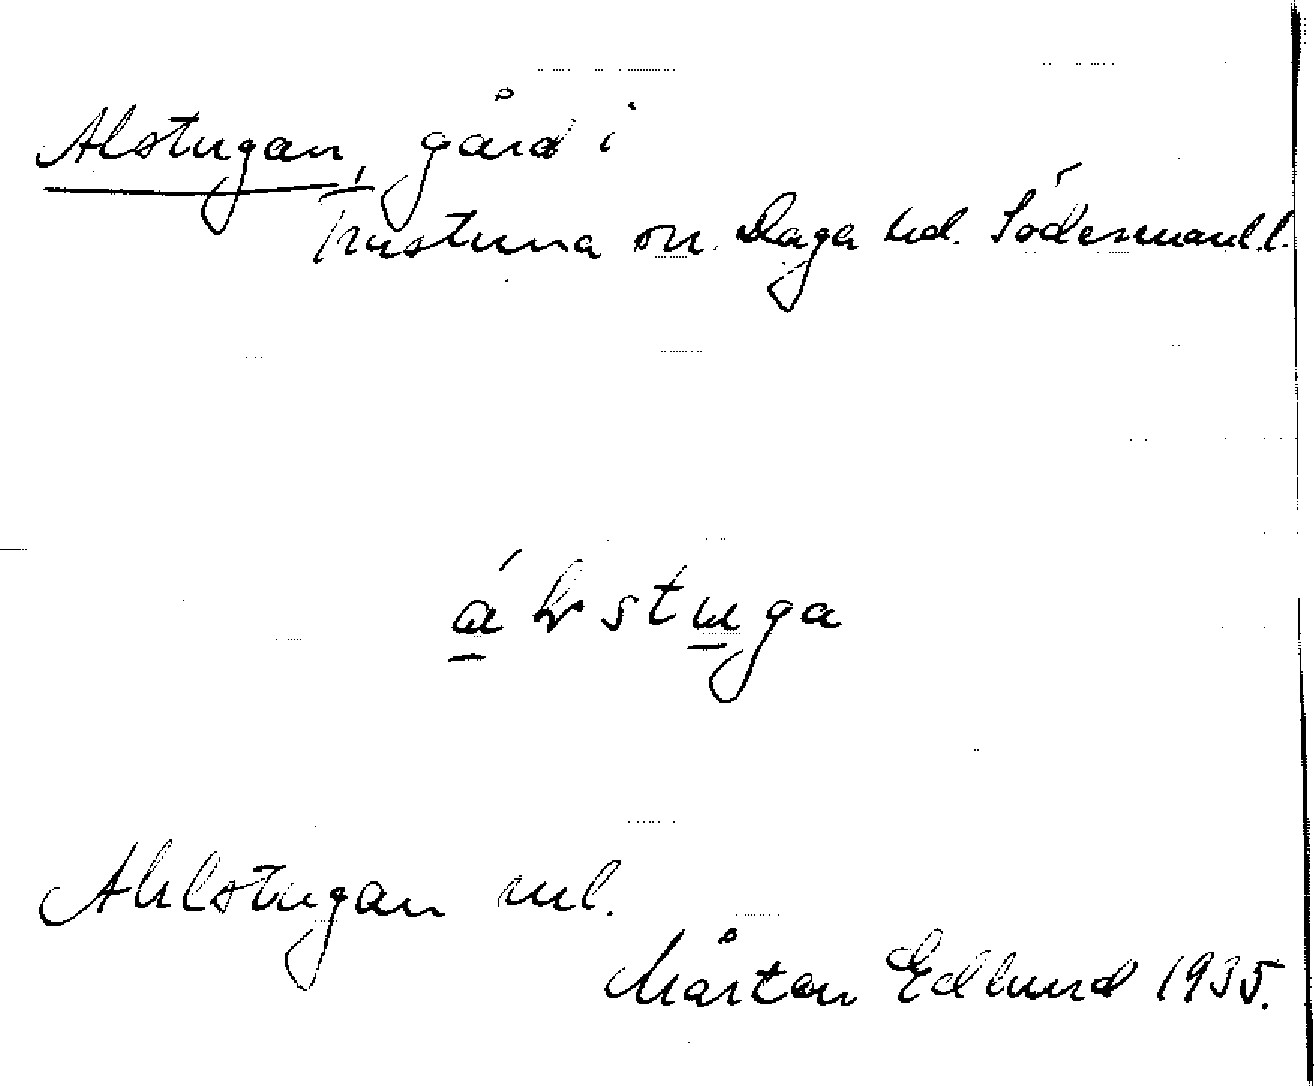 Alstugan, gård i
Frustuna sn. Daga hd. Södermanl.l.
Ahlstugan ml.
Mårten Edlund 1935.